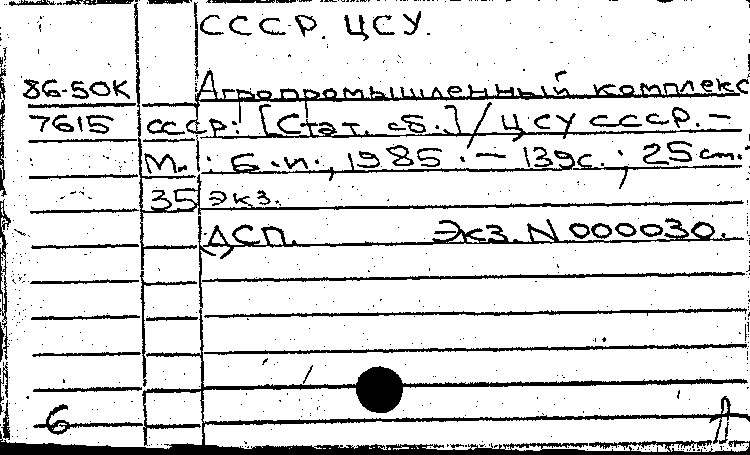 СССР. ЦСУ.
86-50К Агропромышленный комплекс
7615 СССР: [Стат. сб.] / ЦСУ СССР. –
М. : Б.и., 1985. – 139с. ; 25 см.
35 экз.
ДСП. Экз. N 000030.
6